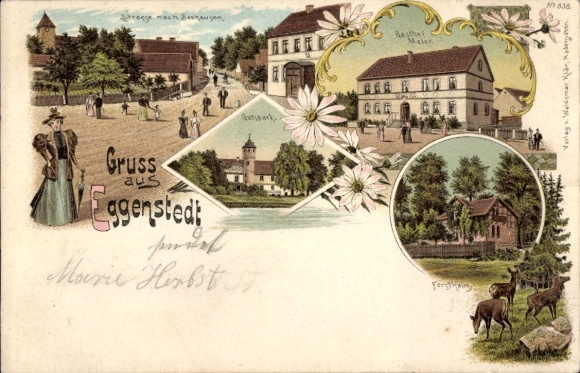 Strasse nach Seehausen.
Gasthof
Meier.
No 838.
Verlag v. Waldemar Klär,
Gutspark.
Gruss
aus
Eggenstedt
Forsthaus
sendet
Marie Herbst